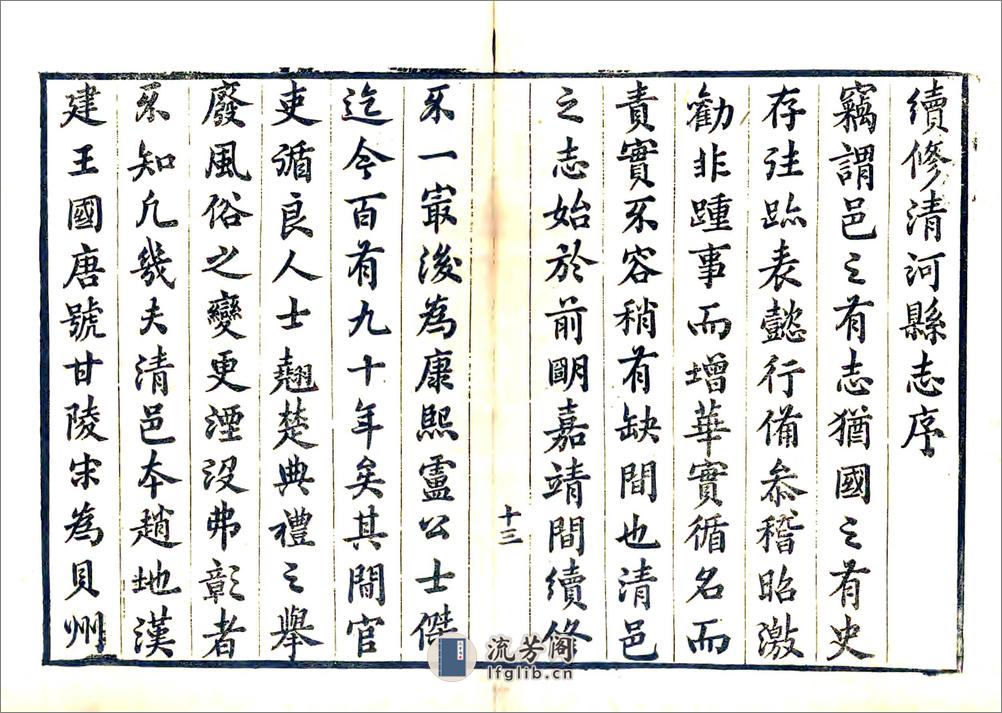 續修清河縣志序
竊謂邑之有志猶國之有史
存往跡表懿行備叅稽昭激
勸非踵事而增華實循名而
責實不容稍有缺間也清邑
之志始於前明嘉靖間續修
十三
不一㝡後為康熙盧公士傑
迄今百有九十年矣其間官
吏循良人士翹楚典禮之舉
廢風俗之變更湮没弗彰者
不知凡幾夫清邑本趙地漢
建王國唐號甘陵宋為貝州
流芳阁
lfglib.cn